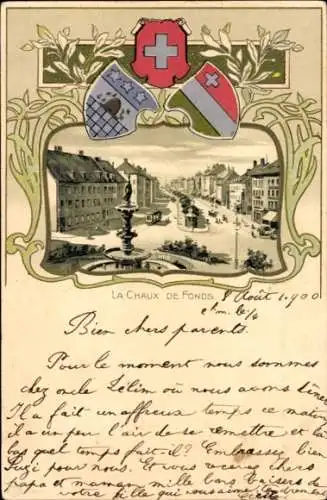 LA CHAUX DE FONDS. 8 Août 1900
Bien chers parents.
Pour le moment nous sommes
chez oncle Zélim où nous avons dîner
Il a fait un affreux temps ce matin
il a un peu l'air de se remettre et là
bas quel temps fait-il? Embrassez bien
pour nous. Et vous avez chers
papa et maman mille bons baisers de
votre fille qui